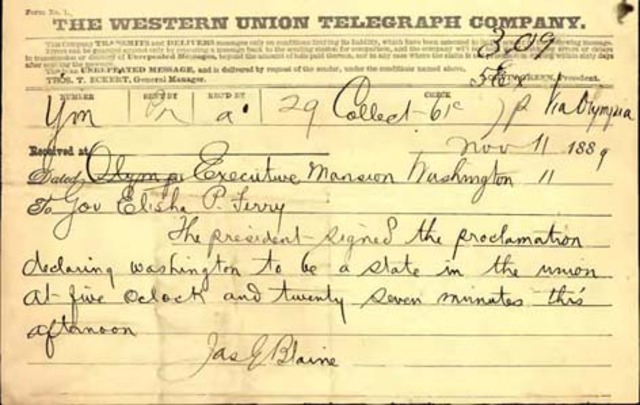 Form No. 1.
THE WESTERN UNION TELEGRAPH COMPANY.
This Company TRANSMITS and DELIVERS messages only on conditions limiting its liability, which have been assented to following message.
Errors can be guarded against only by repeating a message back to the sending station for comparison, and the company
in transmission or delivery of Unrepeated Messages, beyond the amount of tolls paid thereon, nor in any case where the claim within sixty days
after
This is an UNREPEATED MESSAGE, and is delivered by request of the sender, under the conditions named above.
THOS. T. ECKERT, General Manager. NORVIN GREEN, President.
309
NUMBER SENT BY REC'D BY CHECK
a 29 Collect 61c Via Olympia
Received at Nov 11 1889
Dated Olympi Executive Mansion Washington 11
To Gov Elisha P. Ferry
The president signed the proclamation
declaring washington to be a state in the union
at five oclock and twenty seven minates this
afternoon
Jas G Blaine